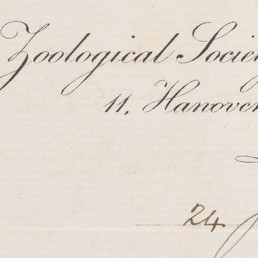 Zoological Societ
11, Hanover
24